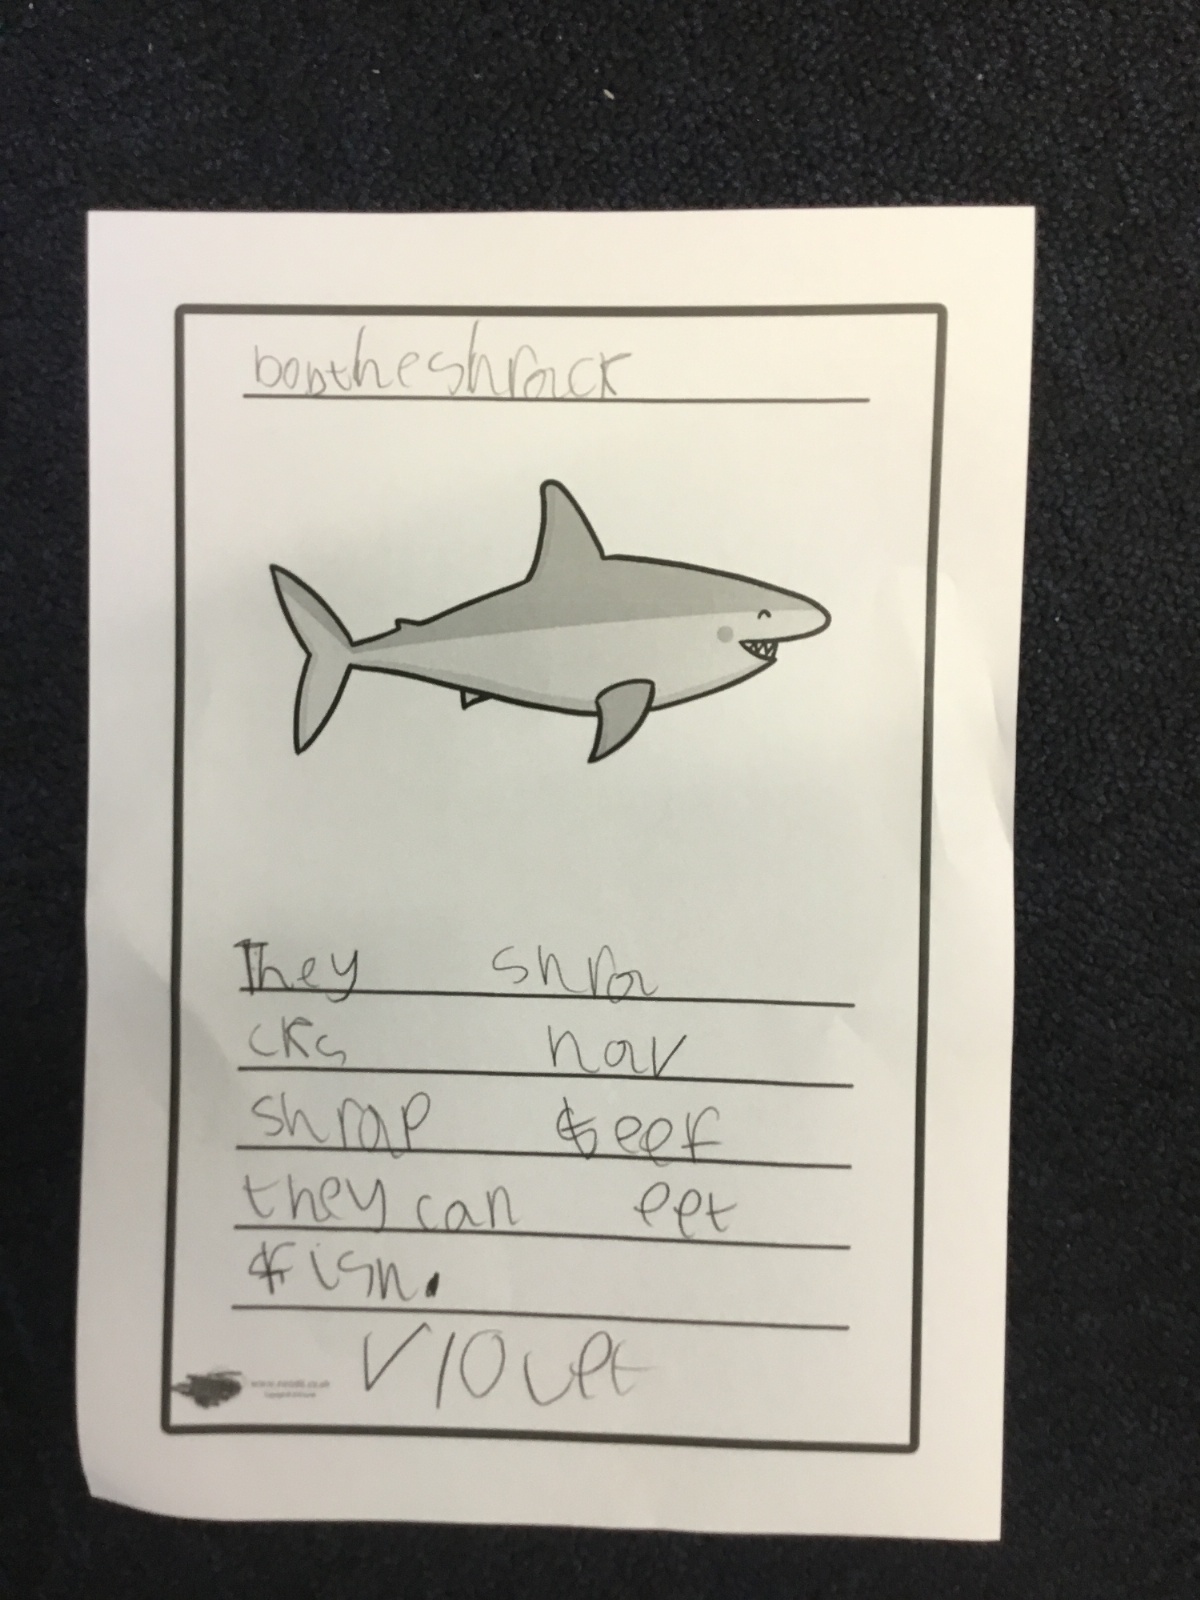 bobtheshrack
They shra
cks hav
shrap teef
they can eet
fish.
Violet